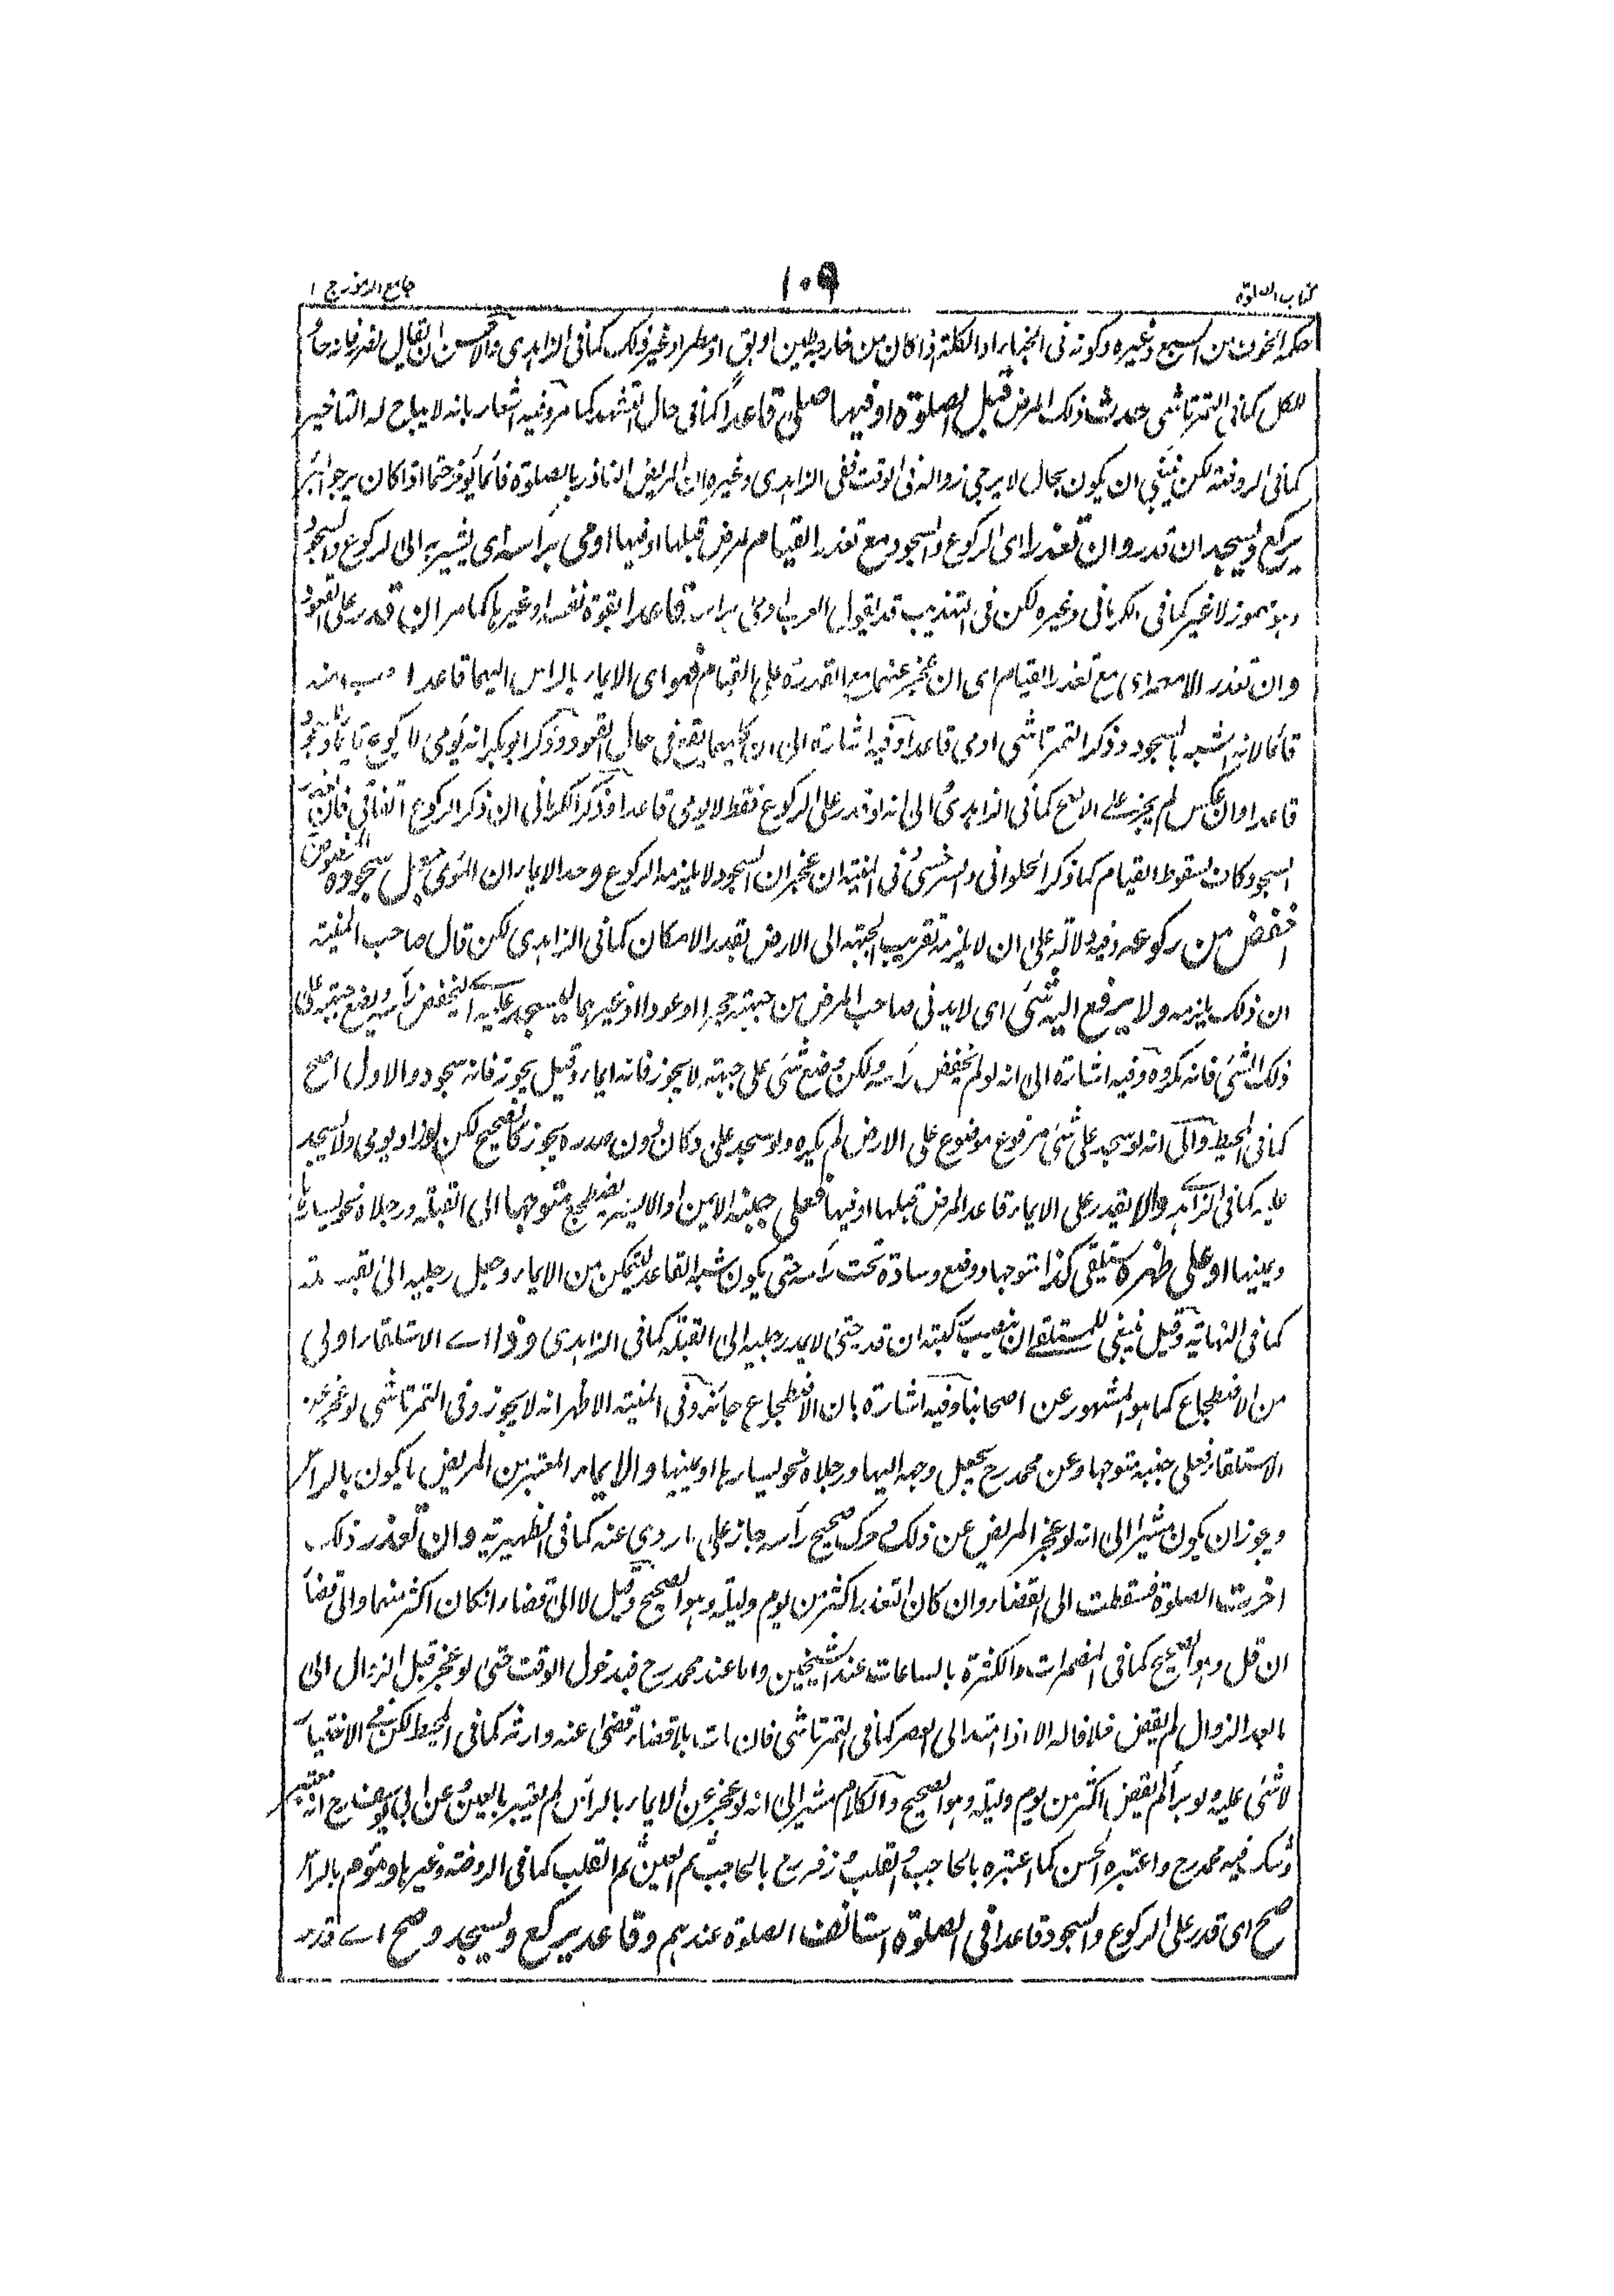 كتاب الصلوة
١٠٩
جامع الرموز ج ١
حكمه الخوف من السبع وغيره وكونه فى الخباء او الكلة اذا كان من خارجه طين او بق او مطر او غير ذلك كما فى الزاهدى والاحسن ان يقال لضر فانه
للكل كما فى التمرتاشى حدث ذلك المرض قبل الصلوة او فيها صلى قاعدا كما فى حال التشهد كما مر وفيه اشعار بانه لا يباح له التاخير
كما فى الروضة لكن ينبغى ان يكون بحال لا يرجى زواله فى الوقت ففى الزاهدى وغيره ان المريض الناذر بالصلوة قائما يؤخر حتما اذا كان يرجو البر
يركع ويسجد ان قدر وان تعذرا اى الركوع والسجود مع تعذر القيام لمرض قبلها او فيها اومى براسه اى يشير به الى الركوع والسجود
وهو مهموز لا غير كما فى الكرمانى وغيره لكن فى التهذيب قد يقول العرب اومى براسه قاعدا بقوة نفسه او غيرها كما مر ان قدر على القعود
وان تعذرا لا مع اى مع تعذر القيام اى ان عجز عنهما مع القدرة على القيام فهو اى الايماء بالراس اليهما قاعدا احب منه
قائما لانه اشبه بالسجود وذكر التمرتاشى اومى قاعدا وفيه اشارة الى ان كليهما يقع فى حال القعود وذكر ابو بكر انه يومى للركوع قائما وللسجود
قاعدا وان عكس لم يجز على الاصح كما فى الزاهدى والى انه لو قدر على الركوع فقط لا يومى قاعدا وذكر الكرمانى ان ذكر الركوع اتفاقى فان تعذر
السجود كاف لسقوط القيام كما ذكر الحلوانى والسرخسى وفى المنية ان عجز ان السجود لا يلزمه الركوع وحد الايماء ان المومى جعل سجوده
اخفض من ركوعه وفيه دلالة على ان لا يلزمه تقريب الجبهة الى الارض بقدر الامكان كما فى الزاهدى لكن قال صاحب المنية
ان ذلك يلزمه ولا يرفع اليه شئ اى لا يدنى صاحب المرض من جبهته حجرا او عودا او غيرهما ليسجد عليه اى ليخفض راسه ويضع جبهته على
ذلك الشئ فانه مكروه وفيه اشارة الى انه لو لم يخفض راسه ولكن وضع شئ على جبهته لا يجوز فانه ايماء وقيل يجوز فانه سجود والاول اصح
كما فى المحيط والى انه لو سجد على شئ مرفوع موضوع على الارض لم يكره ولو سجد على دكان دون صدره يجوز كالصحيح لكن لو زاد يومى ولا يسجد
عليه كما فى الزاهدى والا يقدر على الايماء قاعدا لمرض قبلها او فيها فعلى جنبه الايمن او الايسر يضطجع متوجها الى القبلة ورجلاه نحو يسارها
ويمينها او على ظهره كمستلقى كذا متوجها ووضع وسادة تحت راسه حتى يكون شبه القاعد ليتمكن من الايماء وجعل رجليه الى القبلة
كما فى النهاية وقيل ينبغى للمستلقى ان ينصب ركبتيه ان قدر حتى لا يمد رجليه الى القبلة كما فى الزاهدى وذا اى الاستلقاء اولى
من الاضطجاع كما هو المشهور عن اصحابنا وفيه اشارة بان الاضطجاع جائز وفى المنية الاظهر انه لا يجوز وفى التمرتاشى لو عجز عن
الاستلقاء فعلى جنبه متوجها وعن محمد رح يجعل وجهه اليها ورجلاه نحو يسارها او يمينها والايماء المعتبر من المريض ما يكون بالراس
ويجوز ان يكون مشيرا الى انه لو عجز المريض عن ذلك وحرك صحيح راسه جاز على ما روى عنه كما فى الظهيرية وان تعذر ذلك
اخرت الصلوة فسقطت الى القضاء وان كان التعذر اكثر من يوم وليلة وهو الصحيح وقيل لا الى قضاء ان كان اكثر منهما والى قضاء
ان قل وهو الصحيح كما فى المضمرات والكثرة بالساعات عند الشيخين واما عند محمد رح فبدخول الوقت حتى لو عجز قبل الزوال الى
ما بعد الزوال لم يقض خلافا له الا اذا امتد الى العصر كما فى التمرتاشى فان مات بلا قضاء قضى عنه وارثه كما فى المحيط لكن فى الاختيار
لا شئ عليه ولو برأ لم يقض اكثر من يوم وليلة وهو الصحيح والكلام مشير الى انه لو عجز عن الايماء بالراس لم يعتبر بالعين وعن ابى يوسف رح انه معتبر
وشك فيه محمد رح واعتبره الحسن كما اعتبره بالحاجب والقلب وزفر رح بالحاجب ثم العين ثم القلب كما فى الروضة وغيرها ومؤم بالراس
صح اى قدر على الركوع والسجود قاعدا فى الصلوة استانف الصلوة عندهم وقاعد يركع ويسجد وصح اى قدر